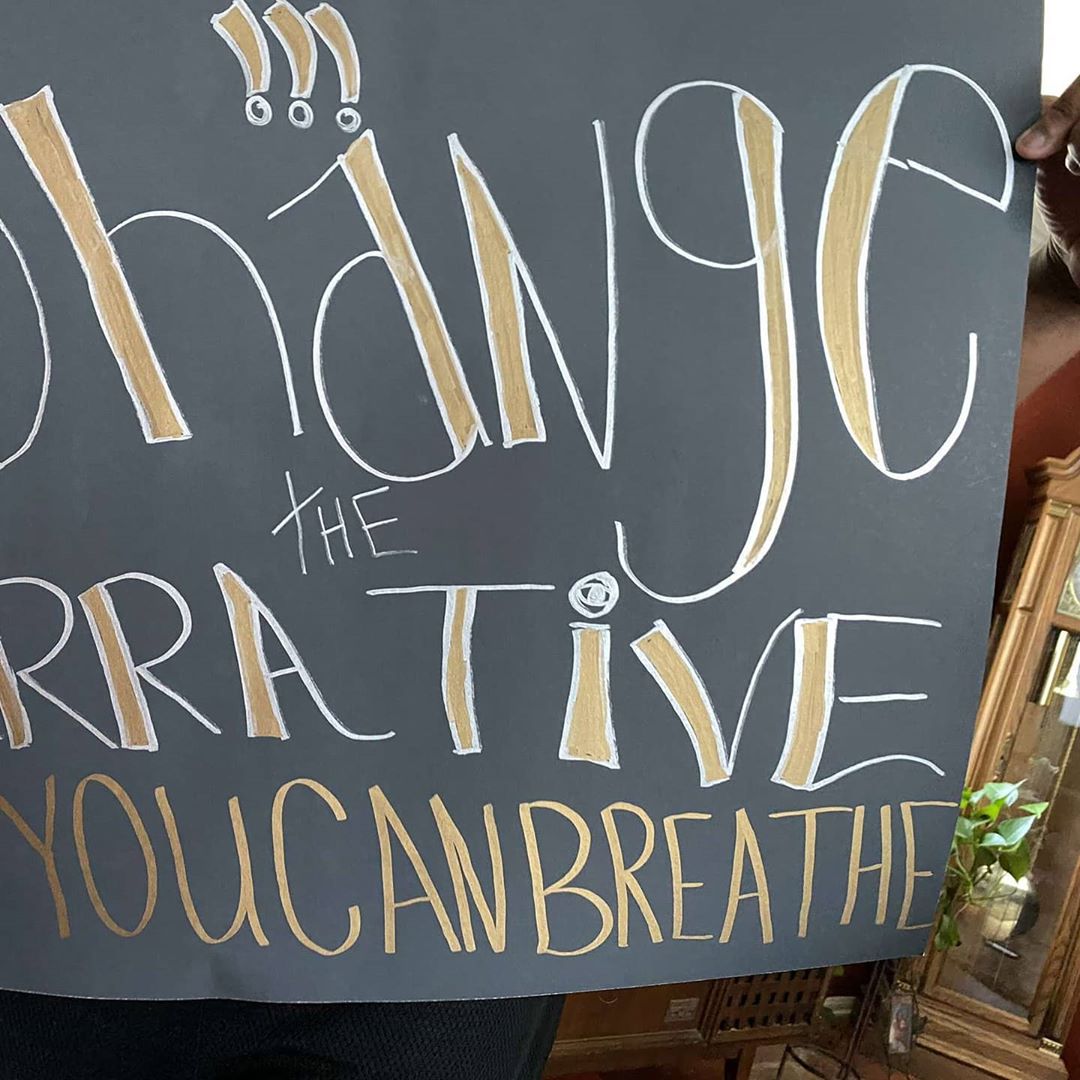 change
THE
RRATiVE
YOUCANBREATHE